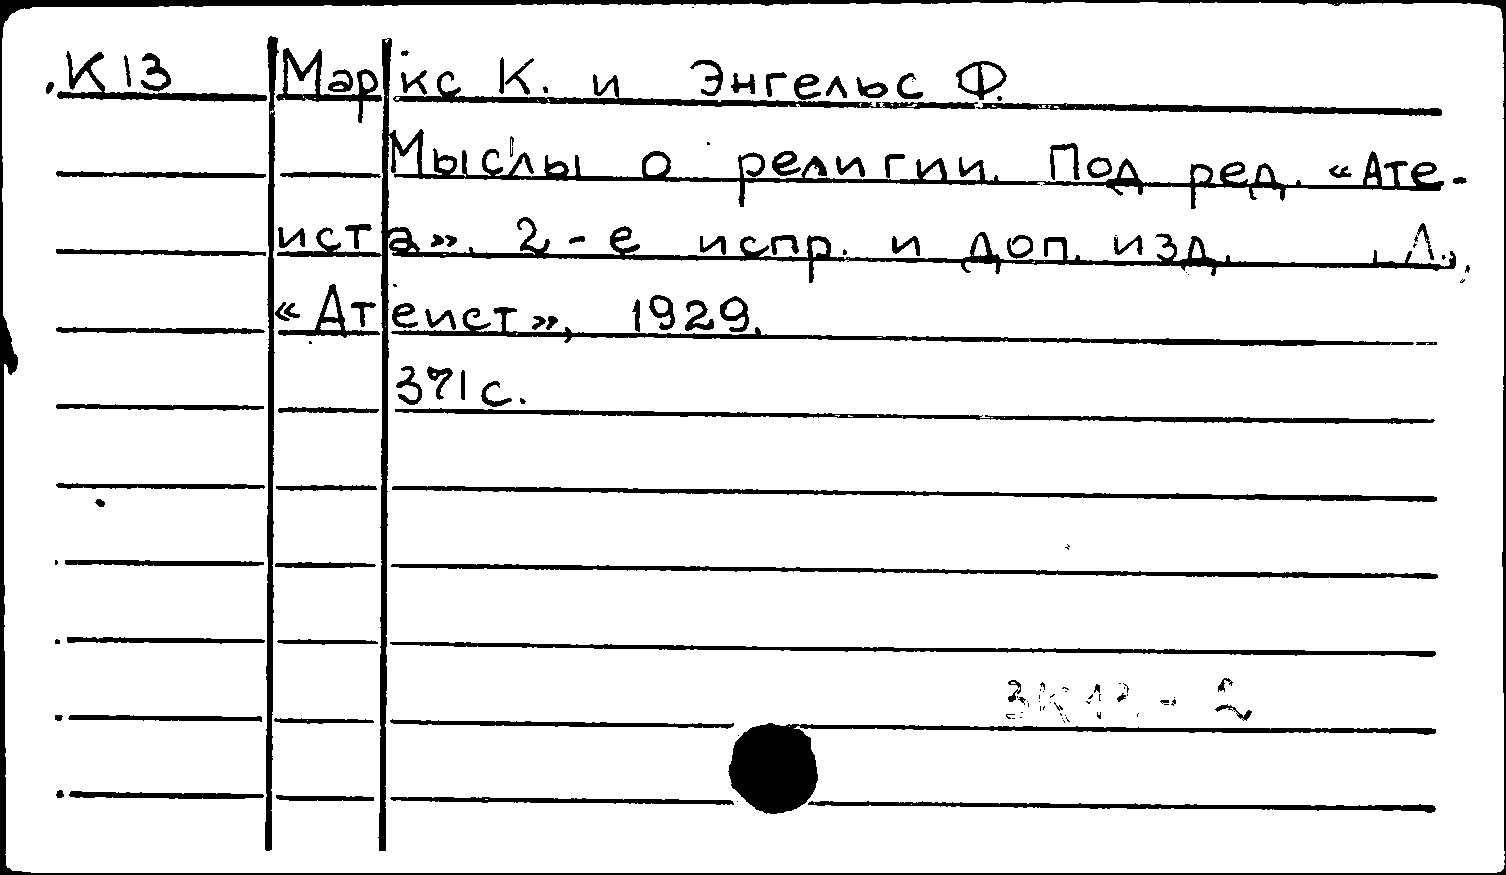 К13 Маркс К. и Энгельс Ф.
Мыслы о религии. Под ред. «Ате-
иста». 2-е испр. и доп. изд. Л.,
«Атеист», 1929.
371 с.